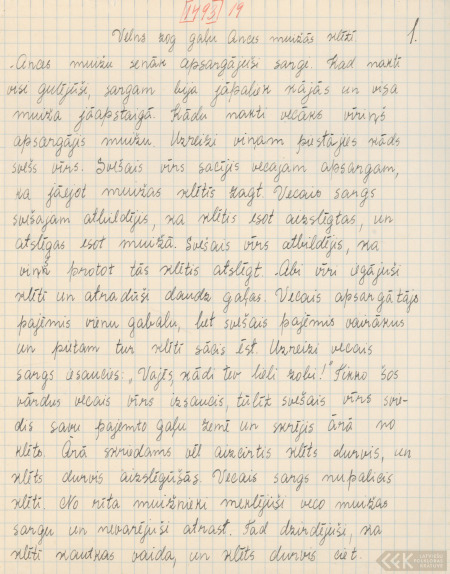 1793 19
Velns zog gaļu Ances muižas klētī 1.
Ances muižu senāk apsargājuši sargi. Kad naktī
visi gulējuši, sargam bija jāpaliek kājās un visa
muiža jāapstaigā. Kādu nakti vecāks vīriņš
apsargājis muižu. Uzreizi viņam piestājies kāds
svešs vīrs. Svešais vīrs sacījis vecajam apsargam,
ka jāejot muižas klētīs zagt. Vecais sargs
svešajam atbildējis, ka klētis esot aizslēgtas, un
atslēgas esot muižā. Svešais vīrs atbildējis, ka
viņš protot tās klētis atslēgt. Abi vīri iegājuši
klētī un atraduši daudz gaļas. Vecais apsargātājs
paņēmis vienu gabalu, bet svešais paņēmis vairākus
un pietam tur klētī sācis ēst. Uzreizi vecais
sargs iesaucies: „Vajēs, kādi tev lieli zobi!" Tikko šos
vārdus vecais vīrs izsaucis, tūlīt svešais vīrs svie-
dis savu paņemto gaļu zemē un skrējis ārā no
klēts. Ārā skriedams vēl aizcirtis klēts durvis, un
klēts durvis aizslēgušās. Vecais sargs nupalicis
klētī. No rīta muižnieki meklējuši veco muižas
sargu un nevarējuši atrast. Tad dzirdējuši, ka
klētī kautkas vaida, un klēts durvis ciet.
LATVIEŠU FOLKLORAS KRĀTUVE